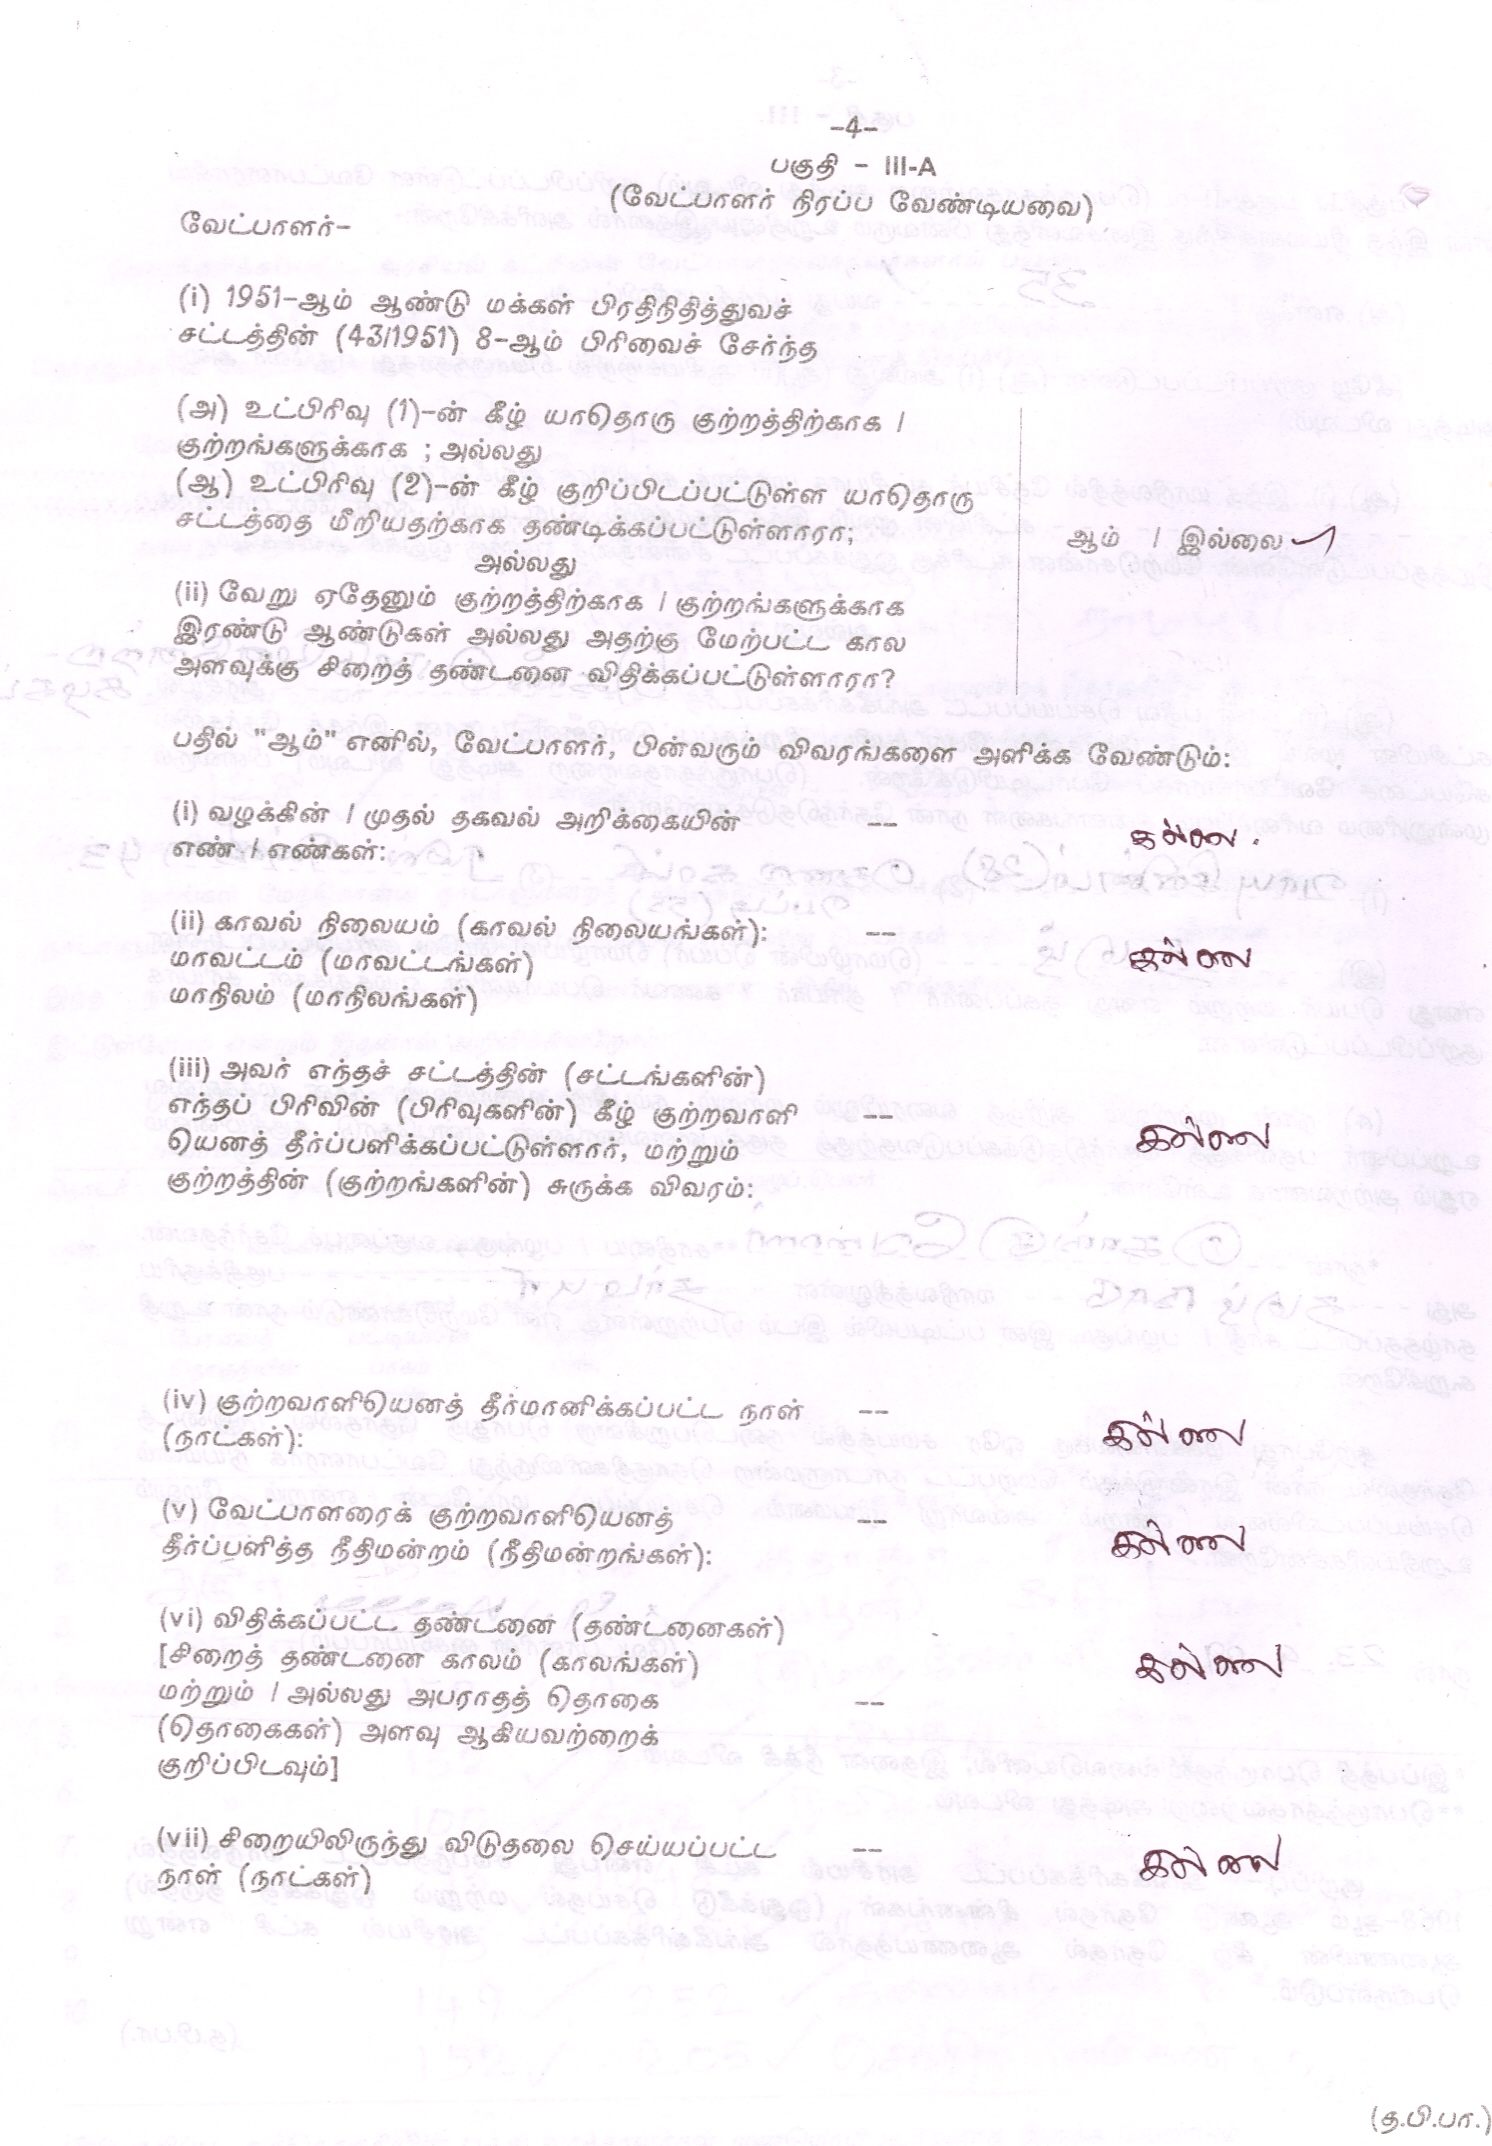 -4-
பகுதி - III-A
(வேட்பாளர் நிரப்ப வேண்டியவை)
வேட்பாளர்-
(i) 1951-ஆம் ஆண்டு மக்கள் பிரதிநிதித்துவச்
சட்டத்தின் (43/1951) 8-ஆம் பிரிவைச் சேர்ந்த
(அ) உட்பிரிவு (1)-ன் கீழ் யாதொரு குற்றத்திற்காக /
குற்றங்களுக்காக ; அல்லது
(ஆ) உட்பிரிவு (2)-ன் கீழ் குறிப்பிடப்பட்டுள்ள யாதொரு
சட்டத்தை மீறியதற்காக தண்டிக்கப்பட்டுள்ளாரா;
ஆம் / இல்லை
அல்லது
(ii) வேறு ஏதேனும் குற்றத்திற்காக / குற்றங்களுக்காக
இரண்டு ஆண்டுகள் அல்லது அதற்கு மேற்பட்ட கால
அளவுக்கு சிறைத் தண்டனை விதிக்கப்பட்டுள்ளாரா?
பதில் "ஆம்" எனில், வேட்பாளர், பின்வரும் விவரங்களை அளிக்க வேண்டும்:
(i) வழக்கின் / முதல் தகவல் அறிக்கையின் --
எண் / எண்கள்: இல்லை.
(ii) காவல் நிலையம் (காவல் நிலையங்கள்): --
மாவட்டம் (மாவட்டங்கள்) இல்லை
மாநிலம் (மாநிலங்கள்)
(iii) அவர் எந்தச் சட்டத்தின் (சட்டங்களின்)
எந்தப் பிரிவின் (பிரிவுகளின்) கீழ் குற்றவாளி --
யெனத் தீர்ப்பளிக்கப்பட்டுள்ளார், மற்றும் இல்லை
குற்றத்தின் (குற்றங்களின்) சுருக்க விவரம்:
(iv) குற்றவாளியெனத் தீர்மானிக்கப்பட்ட நாள் --
(நாட்கள்): இல்லை
(v) வேட்பாளரைக் குற்றவாளியெனத் --
தீர்ப்பளித்த நீதிமன்றம் (நீதிமன்றங்கள்): இல்லை
(vi) விதிக்கப்பட்ட தண்டனை (தண்டனைகள்)
[சிறைத் தண்டனை காலம் (காலங்கள்) இல்லை
மற்றும் / அல்லது அபராதத் தொகை --
(தொகைகள்) அளவு ஆகியவற்றைக்
குறிப்பிடவும்]
(vii) சிறையிலிருந்து விடுதலை செய்யப்பட்ட --
நாள் (நாட்கள்) இல்லை
(த.பி.பா.)